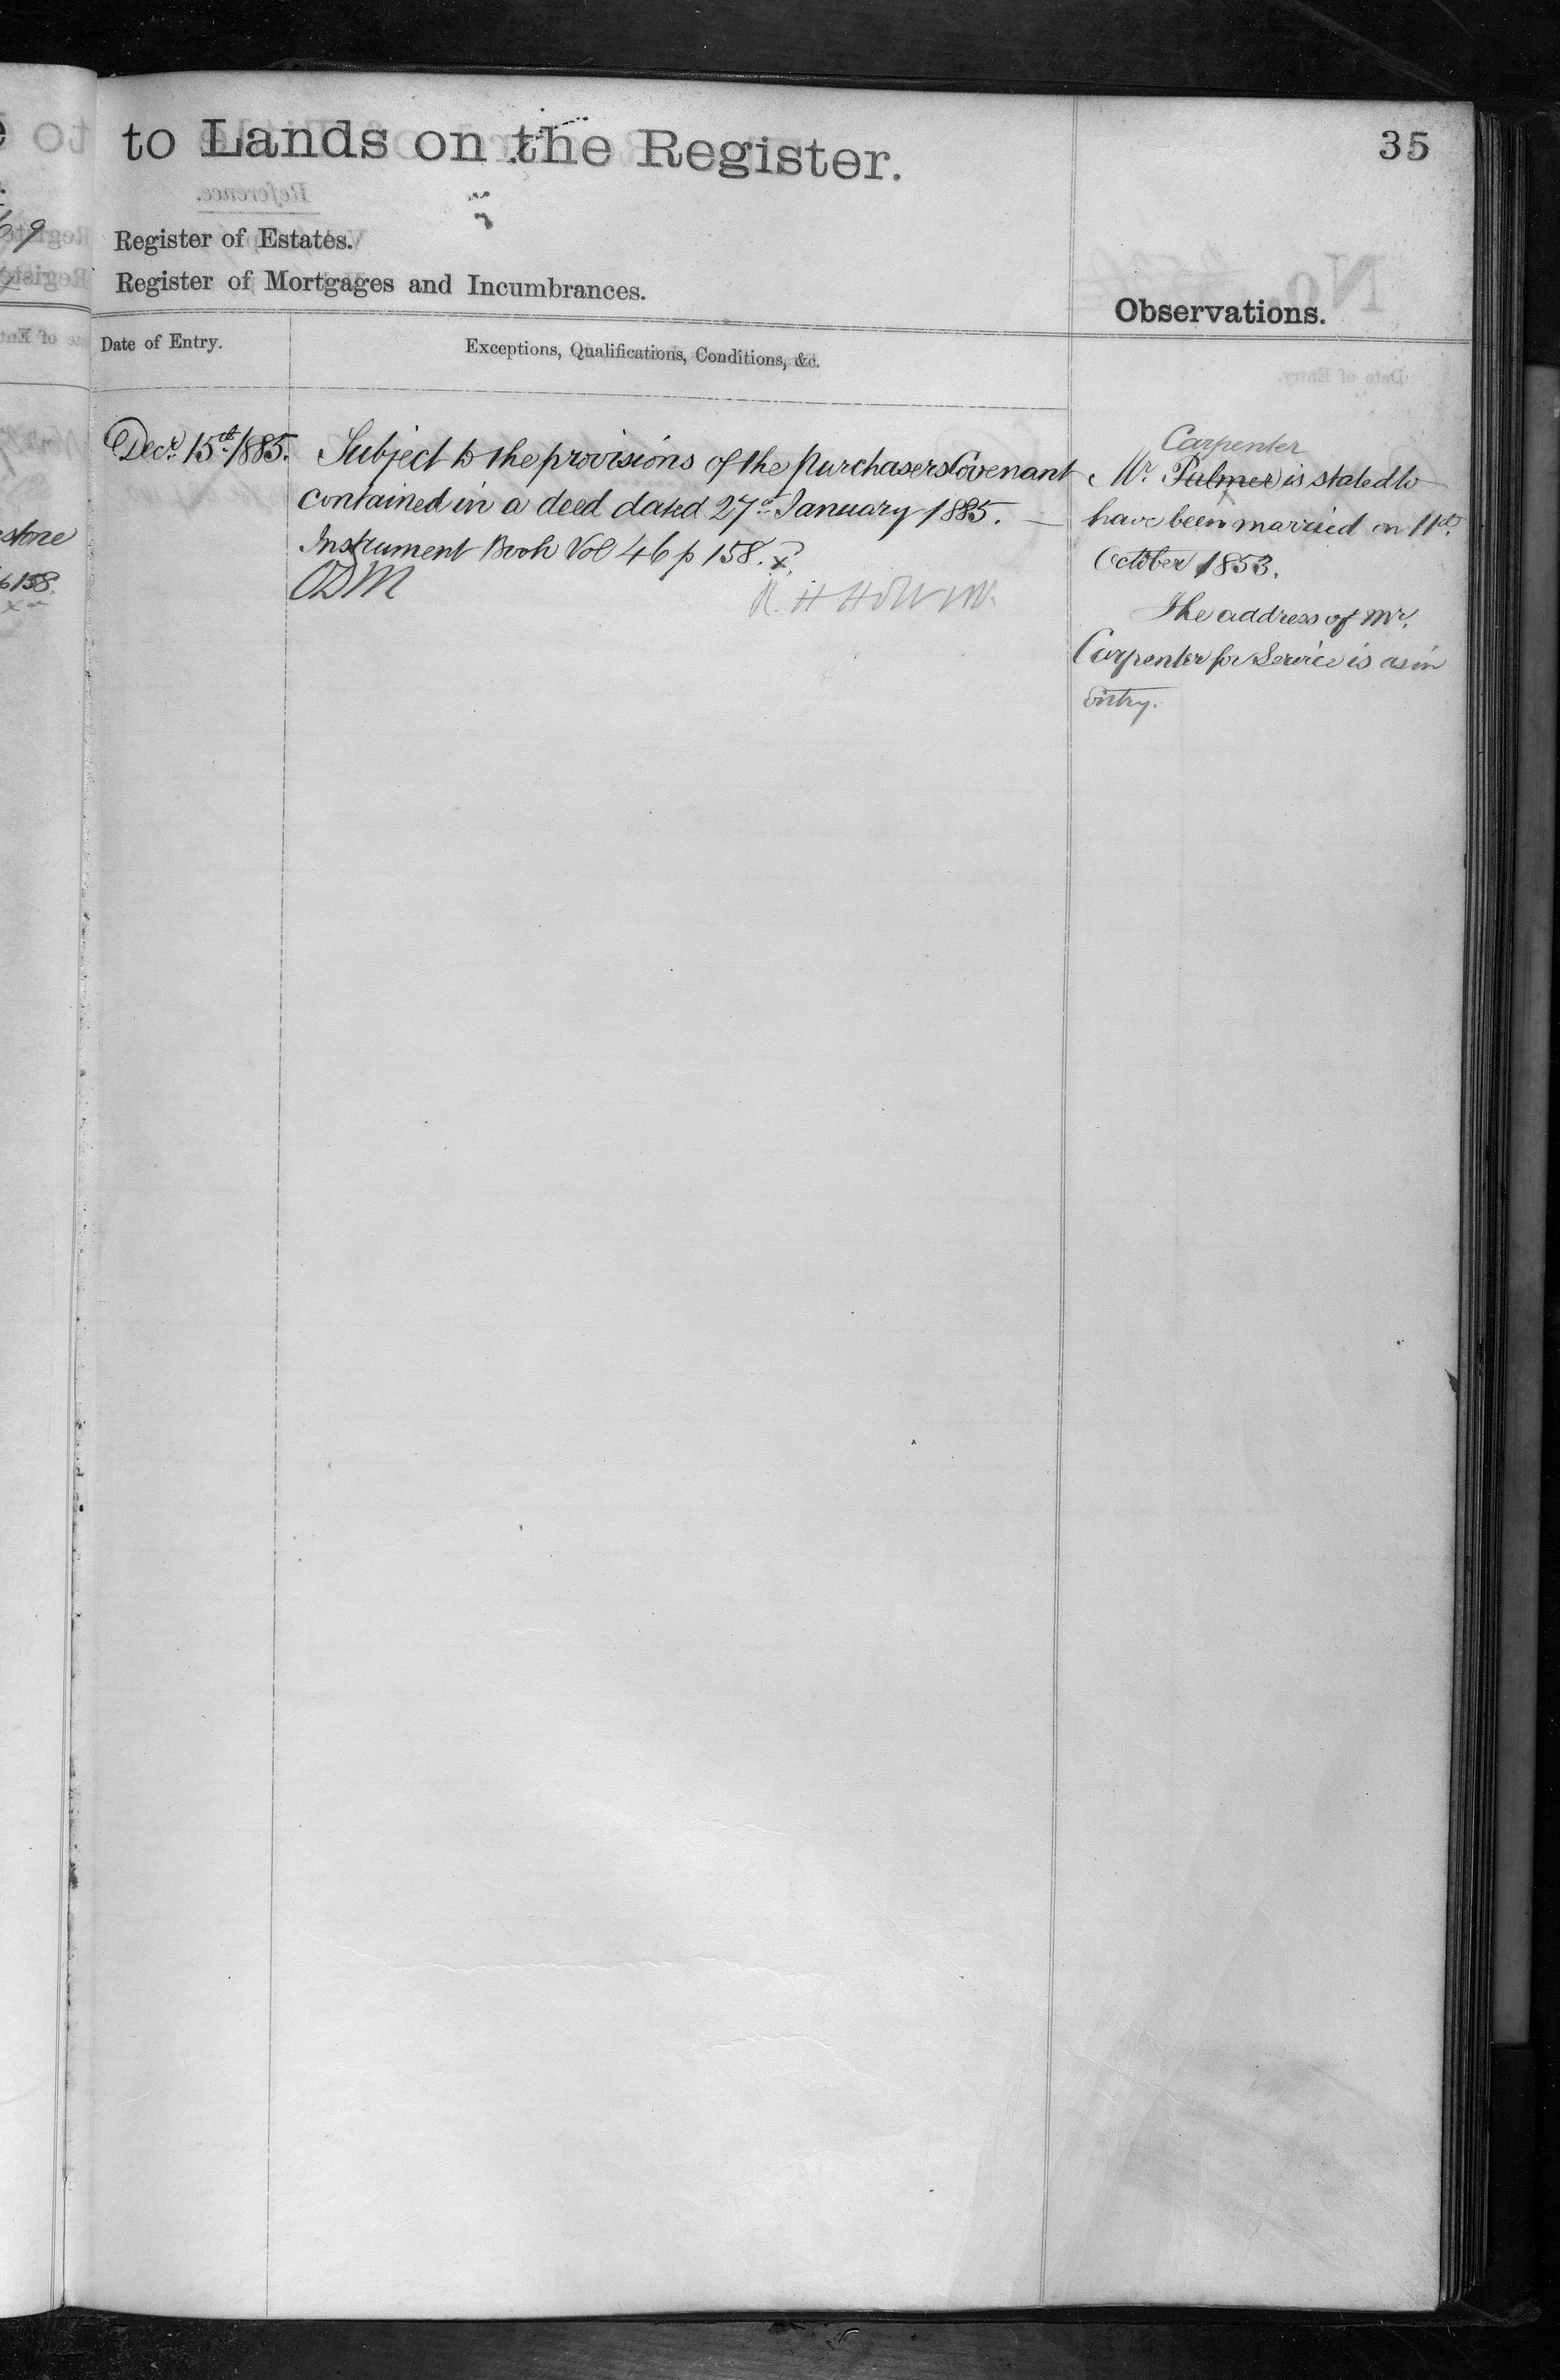 to Lands on the Register.
35
Register of Estates.
Register of Mortgages and Incumbrances.
Observations.
Date of Entry.
Exceptions, Qualifications, Conditions, &c.
Decr. 15th 1885.
Subject to the provisions of the purchasers Covenant
contained in a deed dated 27th January 1885. —
Instrument Book Vol 46 p 158. x
Carpenter
Mr. Palmer is stated to
have been married on 11th
October 1853.
The address of Mr.
Carpenter for Service is as in
Entry.
estone
p 158.